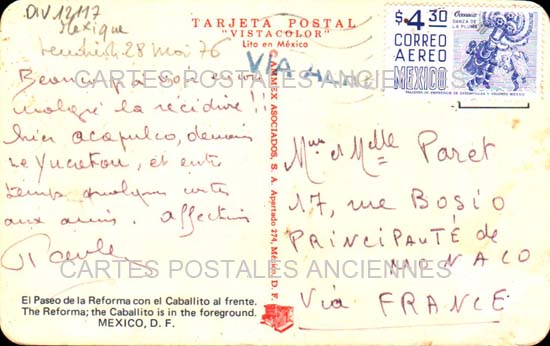 DIV 12117
Mexique
TARJETA POSTAL
"VISTACOLOR"
Lito en México
vendredi 28 Mai 76
VIA AIR
$4.30
CORREO
AEREO
MEXICO
Oaxaca
DANZA DE
LA PLUMA
CARTES POSTALES ANCIENNES
malgré la récidive !!
hier acapulco, demain
le Yucatan, et entre
temps quelques cartes
aux amis.
AMMEX ASOCIADOS, S. A. Apartado 274, México, D. F.
Mme et Melle Paret
17, rue BOSIO
PRINCIPAUTÉ de
MONACO
Via FRANCE
CARTES POSTALES ANCIENNES
El Paseo de la Reforma con el Caballito al frente.
The Reforma; the Caballito is in the foreground.
MEXICO, D. F.